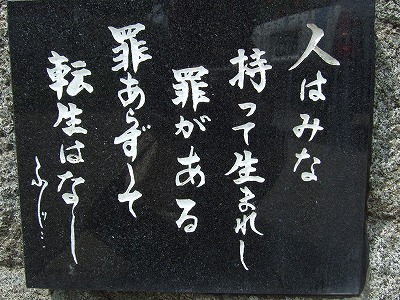 人はみな
持って生まれし
罪がある
罪あらずして
転生はなし